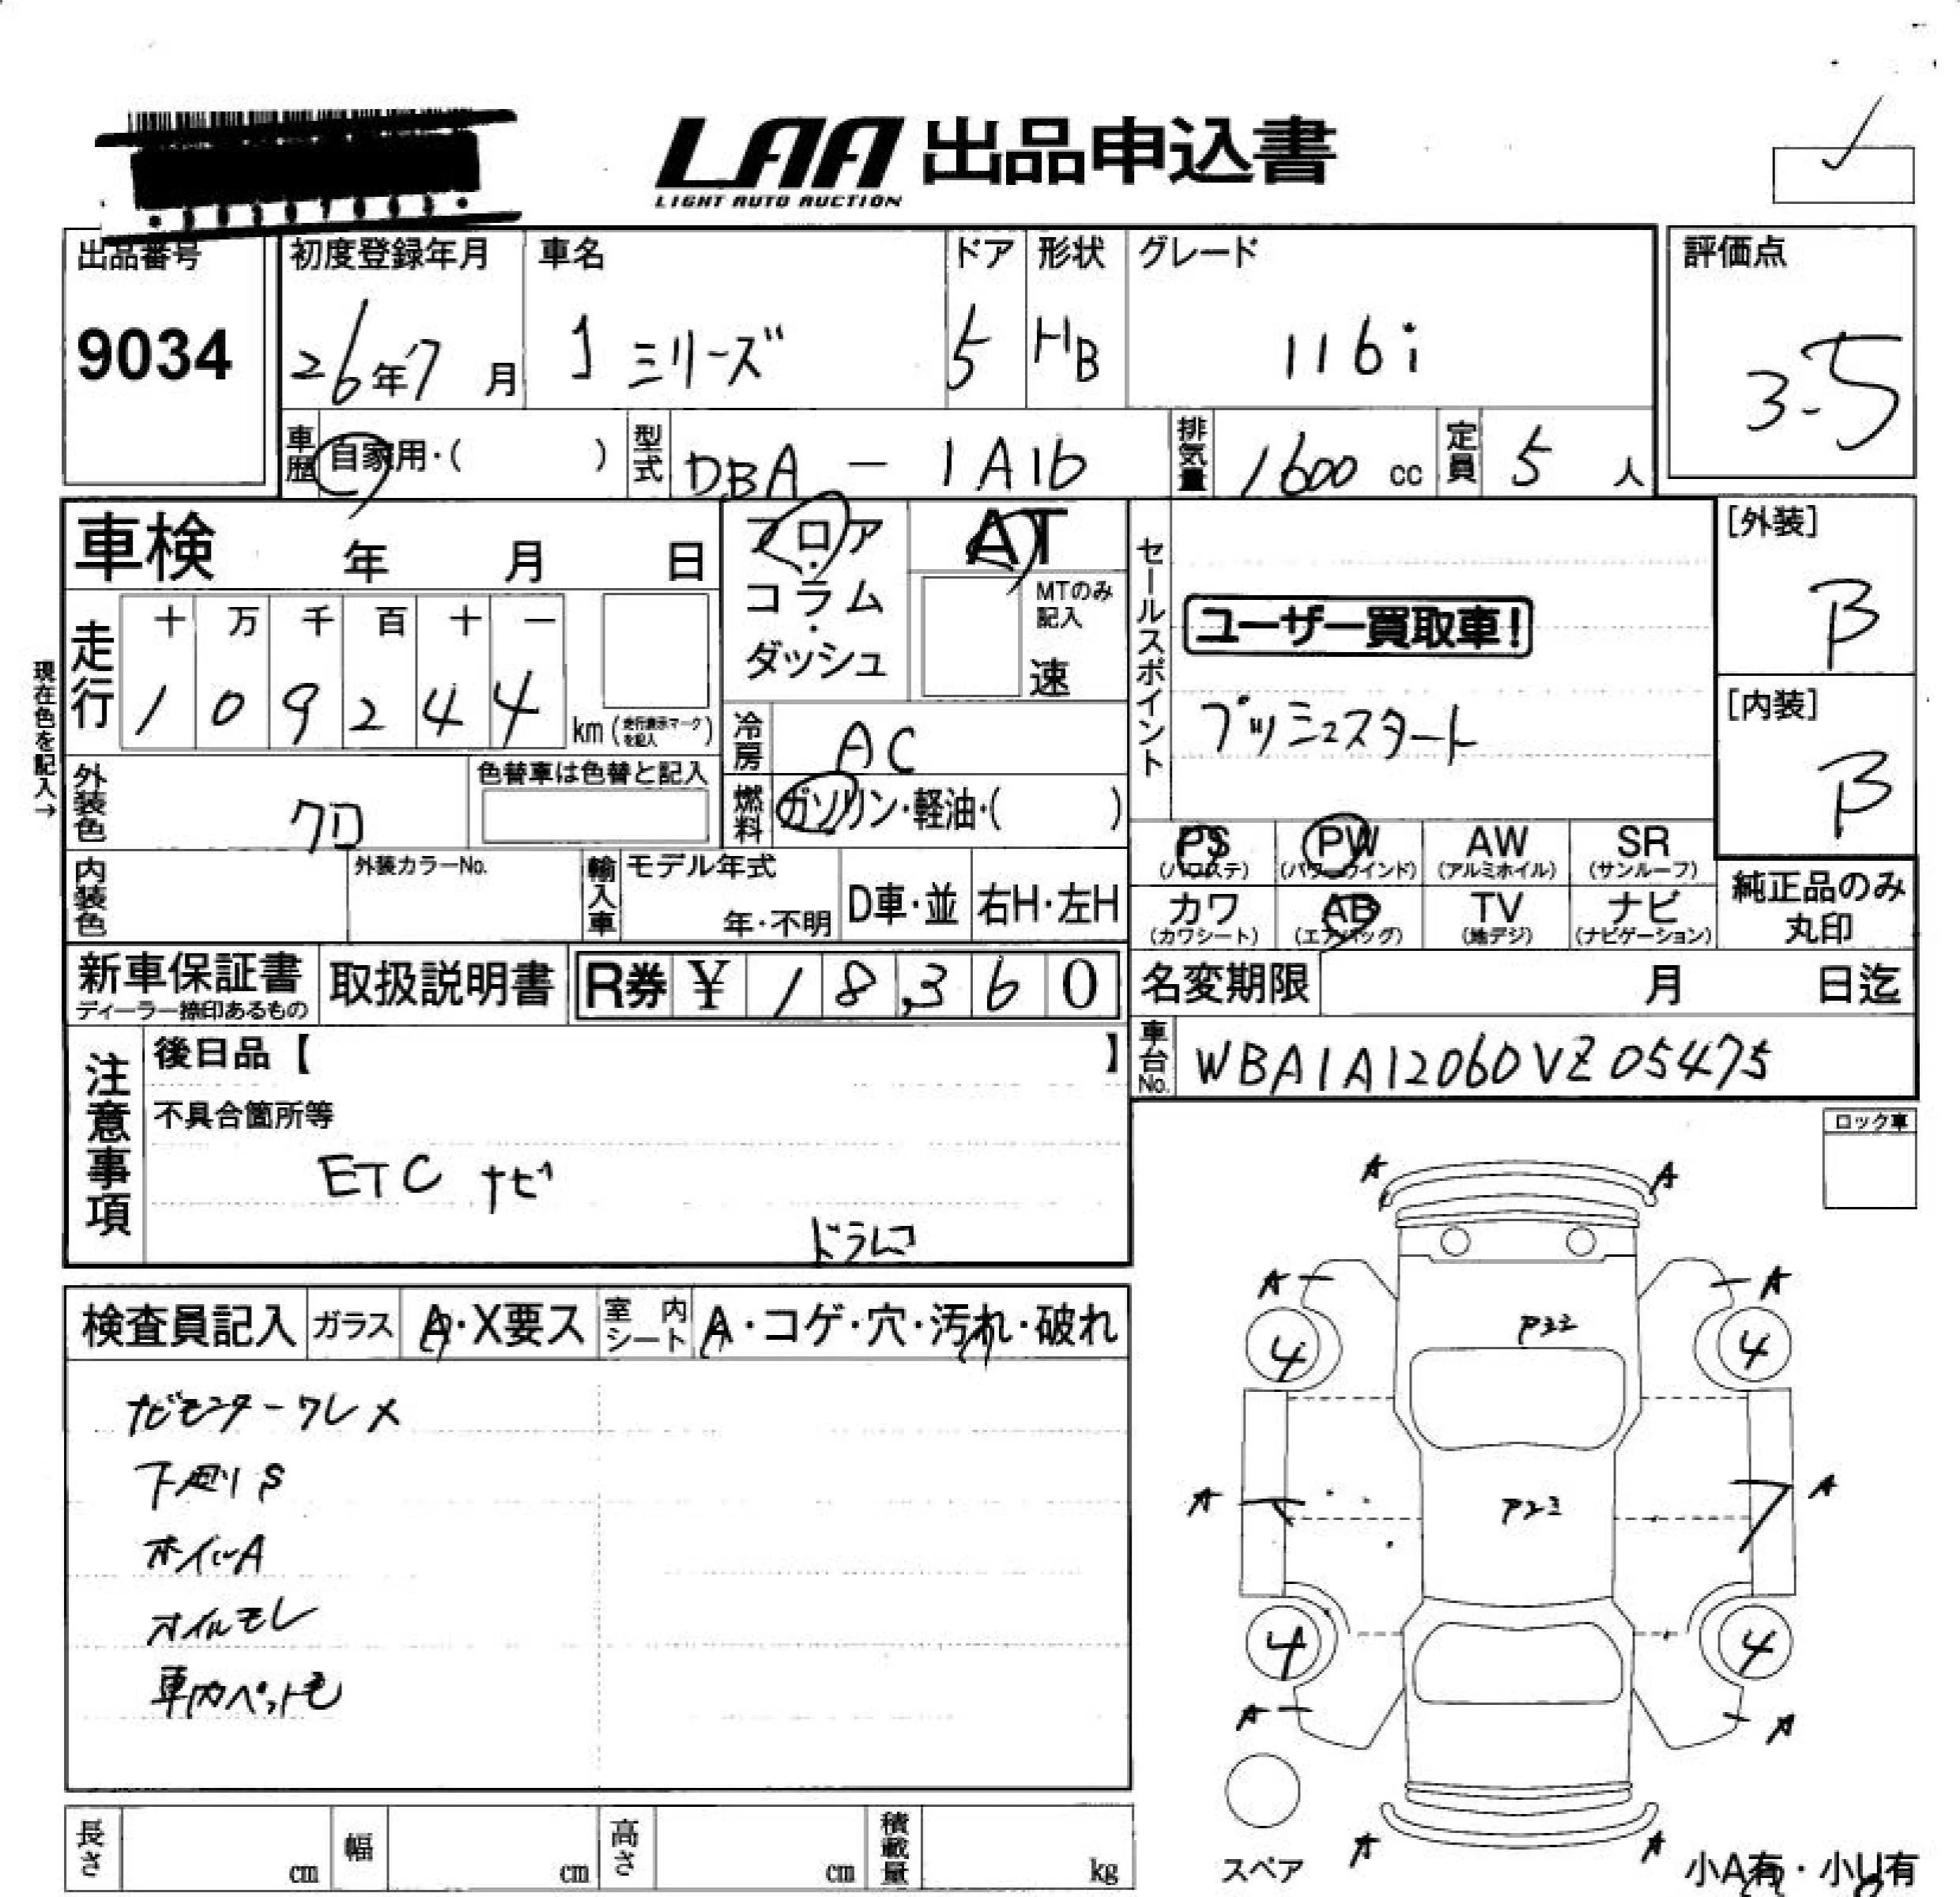 LAA 出品申込書
LIGHT AUTO AUCTION
出品番号
9034
初度登録年月
26年7月
車名
1 ミリーズ
ドア
5
形状
HB
グレード
116i
評価点
3.5
車歴
自家用・( )
型式
DBA - 1A16
排気量
1600 cc
定員
5 人
車検 年 月 日
フロア・コラム・ダッシュ
AT
MTのみ記入
速
セールスポイント
ユーザー買取車!
プッシュスタート
[外装]
B
[内装]
B
現在色を記入→
走行
十 万 千 百 十 一
1 0 9 2 4 4
km (走行表示マークを記入)
冷房
AC
外装色
クロ
色替車は色替と記入
燃料
ガソリン・軽油・( )
PS (パワステ)
PW (パワーウインド)
AW (アルミホイル)
SR (サンルーフ)
カワ (カワシート)
AB (エアバッグ)
TV (地デジ)
ナビ (ナビゲーション)
純正品のみ丸印
内装色
外装カラーNo.
輸入車
モデル年式
年・不明
D車・並
右H・左H
新車保証書
ディーラー捺印あるもの
取扱説明書
R券 ¥ 18,360
名変期限 月 日迄
車台No.
WBA1A12060VZ05475
注意事項
後日品【 】
不具合箇所等
ETC ナビ
ドラレコ
ロック車
検査員記入
ガラス
A・X要ス
室内シート
A・コゲ・穴・汚れ・破れ
ナビモニターワレメ
下廻りS
ホイルA
オイルモレ
車内ペット毛
A A
A A
4 4
A A
4 4
A A
A A
スペア
小A有・小U有
長さ cm
幅 cm
高さ cm
積載量 kg